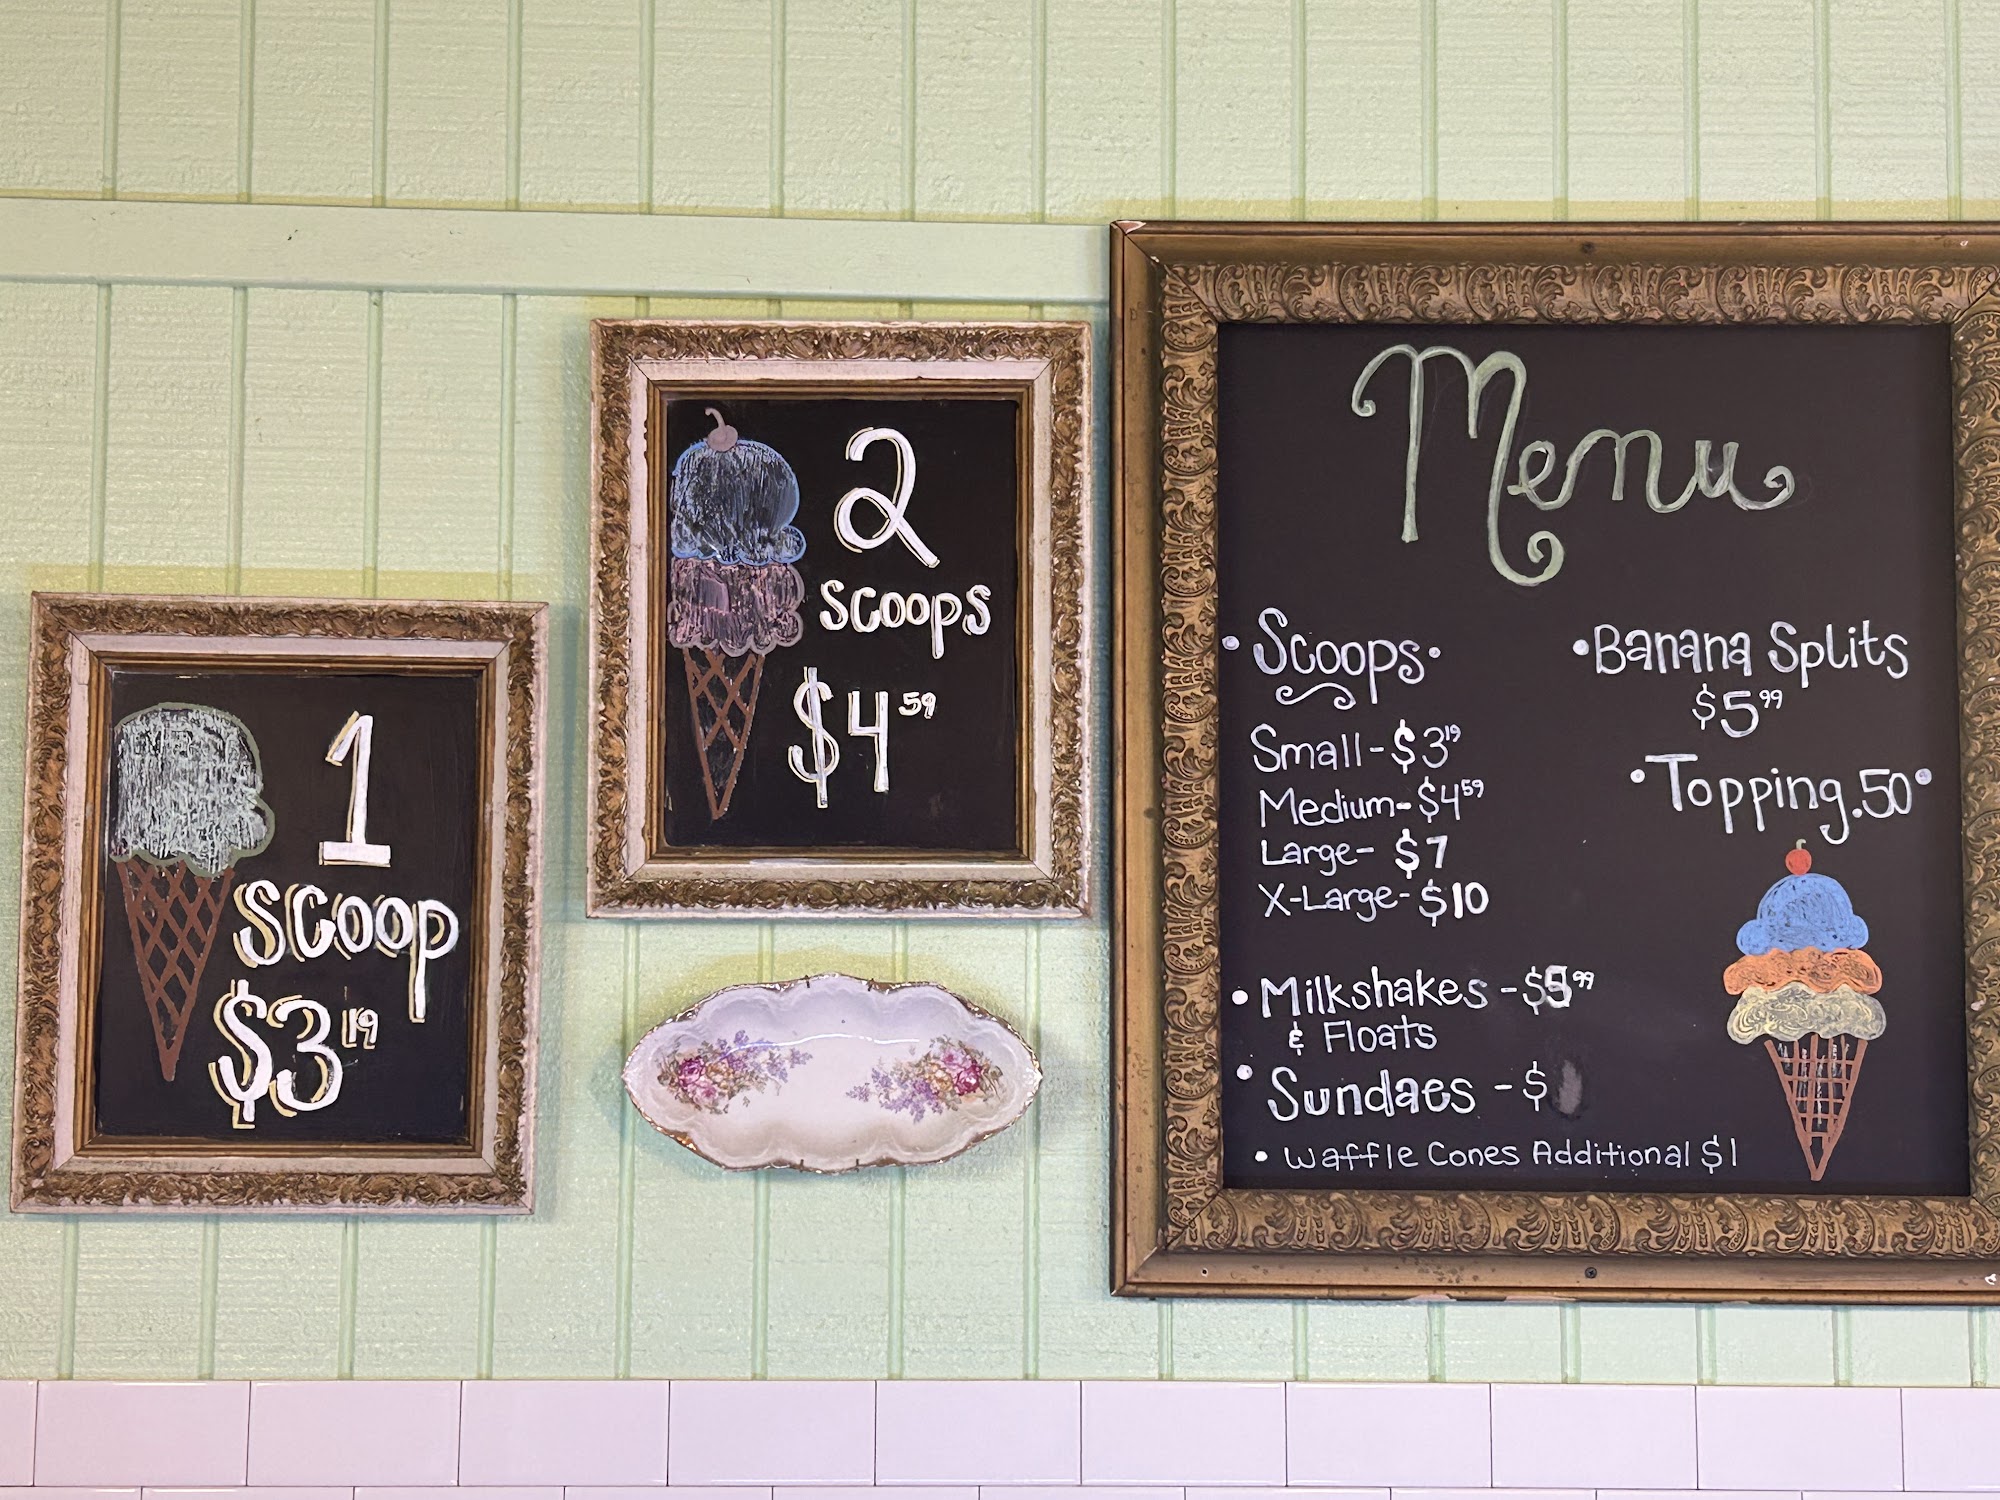 1
Scoop
$3.19
2
Scoops
$4.59
Menu
• Scoops •
Small - $3.19
Medium - $4.59
Large - $7
X-Large - $10
• Milkshakes - $5.99
& Floats
• Sundaes - $
• Waffle Cones Additional $1
• Banana Splits
$5.99
• Topping .50 •